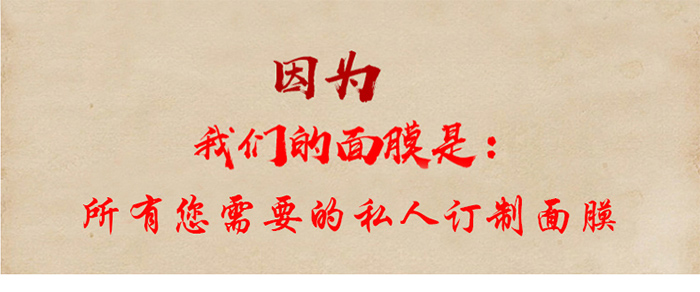 因为
我们的面膜是：
所有您需要的私人订制面膜